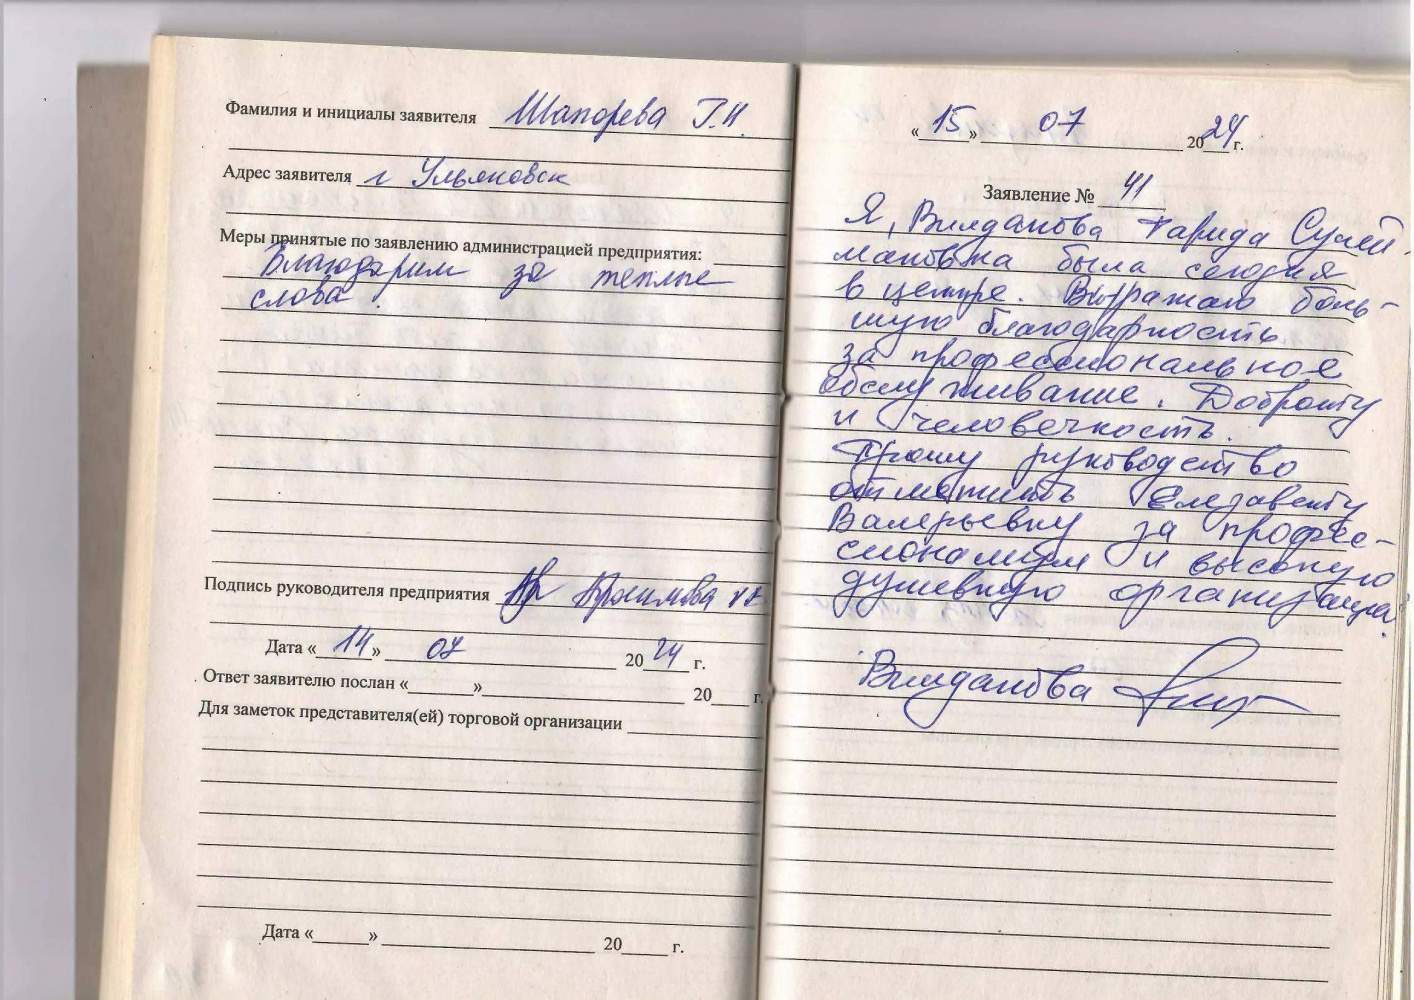 Фамилия и инициалы заявителя Шапорева Г.Н.
Адрес заявителя г Ульяновск
Меры принятые по заявлению администрацией предприятия:
Благодарим за теплые
слова.
Подпись руководителя предприятия
Дата « 14 » 07 2024 г.
Ответ заявителю послан «______»__________ 20____ г.
Для заметок представителя(ей) торговой организации
Дата «______» __________ 20____ г.
« 15 » 07 2024 г.
Заявление № 41
Я, Вилданова Фарида Сулей-
мановна была сегодня
в центре. Выражаю боль-
шую благодарность
за профессиональное
обслуживание. Доброту
и человечность.
Прошу руководство
отметить Елизавету
Валерьевну за профес-
сионализм и высокую
душевную организацию.
Вилданова